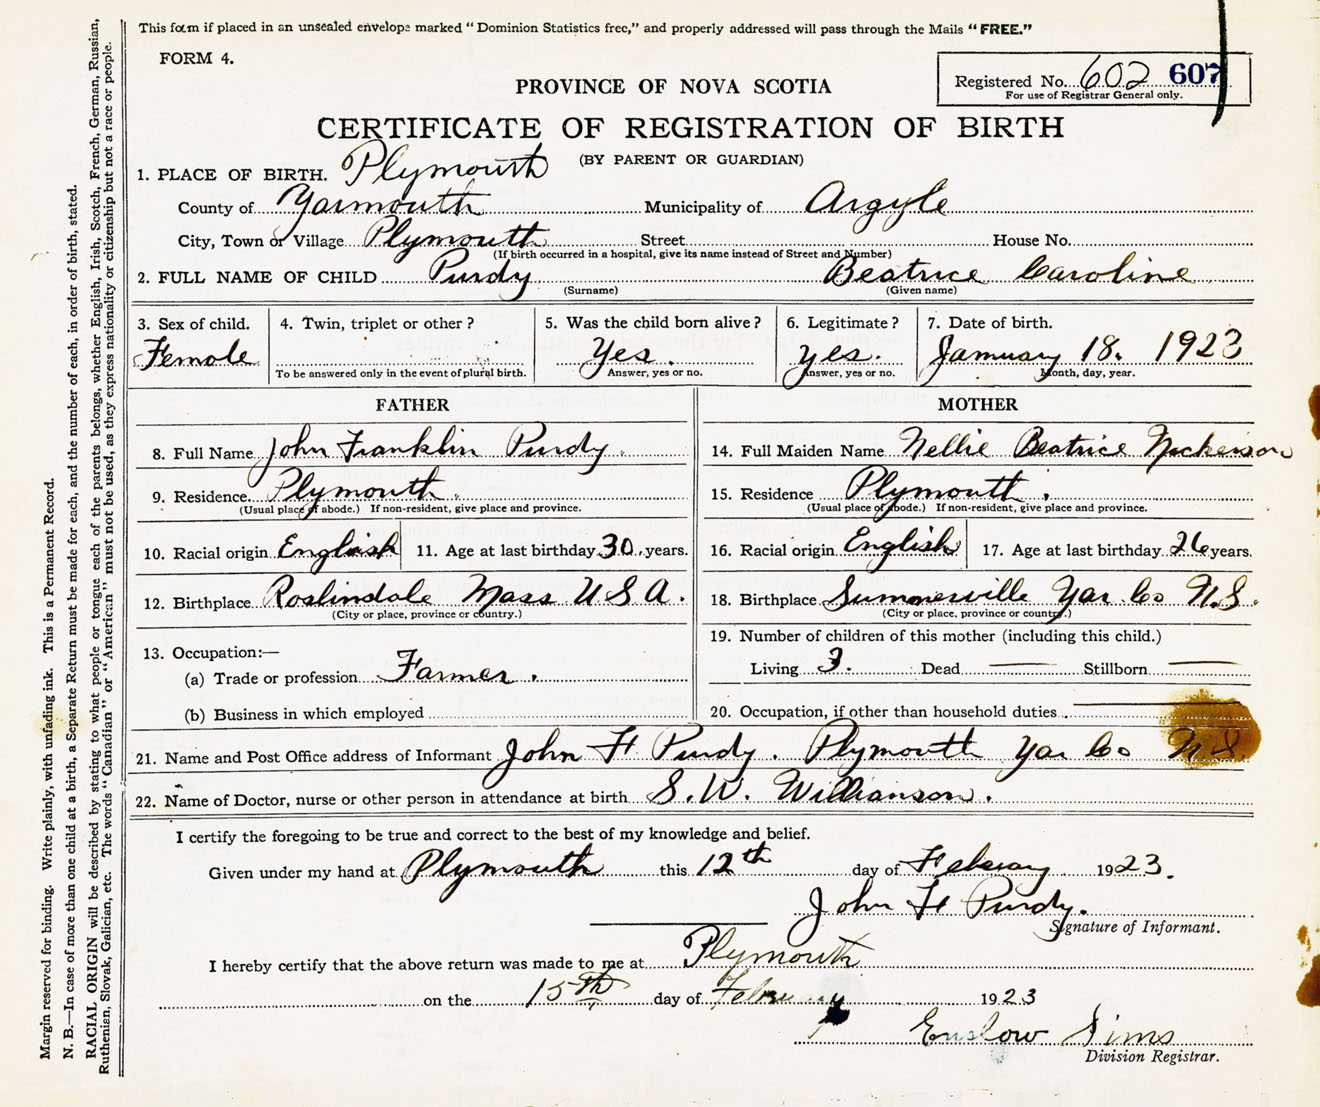 This form if placed in an unsealed envelope marked "Dominion Statistics free," and properly addressed will pass through the Mails "FREE."
FORM 4.
Registered No. 602 607
For use of Registrar General only.
PROVINCE OF NOVA SCOTIA
CERTIFICATE OF REGISTRATION OF BIRTH
(BY PARENT OR GUARDIAN)
1. PLACE OF BIRTH. Plymouth
County of Yarmouth Municipality of Argyle
City, Town or Village Plymouth Street House No.
(If birth occurred in a hospital, give its name instead of Street and Number)
2. FULL NAME OF CHILD Purdy Beatrice Caroline
(Surname) (Given name)
3. Sex of child. 4. Twin, triplet or other? 5. Was the child born alive? 6. Legitimate? 7. Date of birth.
Female Yes. yes. January 18. 1923
To be answered only in the event of plural birth. Answer, yes or no. Answer, yes or no. Month, day, year.
FATHER MOTHER
8. Full Name John Franklin Purdy. 14. Full Maiden Name Nellie Beatrice Nickerson
9. Residence. Plymouth. 15. Residence Plymouth.
(Usual place of abode.) If non-resident, give place and province. (Usual place of abode.) If non-resident, give place and province.
10. Racial origin English 11. Age at last birthday 30 years. 16. Racial origin English 17. Age at last birthday 26 years.
12. Birthplace Roslindale Mass U S A. 18. Birthplace Summerville Yar. Co N.S.
(City or place, province or country.) (City or place, province or country.)
19. Number of children of this mother (including this child.)
13. Occupation:—
Living 3. Dead — Stillborn —
(a) Trade or profession Farmer.
(b) Business in which employed 20. Occupation, if other than household duties —
21. Name and Post Office address of Informant John F Purdy. Plymouth Yar Co N.S.
22. Name of Doctor, nurse or other person in attendance at birth S. W. Williamson.
I certify the foregoing to be true and correct to the best of my knowledge and belief.
Given under my hand at Plymouth this 12th day of February 1923.
John F Purdy.
Signature of Informant.
I hereby certify that the above return was made to me at Plymouth
on the 15th day of February 1923
Enslow Sims
Division Registrar.
Margin reserved for binding. Write plainly, with unfading ink. This is a Permanent Record.
N. B.—In case of more than one child at a birth, a Separate Return must be made for each, and the number of each, in order of birth, stated.
RACIAL ORIGIN will be described by stating to what people or tongue each of the parents belongs, whether English, Irish, Scotch, French, German, Russian,
Ruthenian, Slovak, Galician, etc. The words "Canadian" or "American" must not be used, as they express nationality or citizenship but not a race or people.